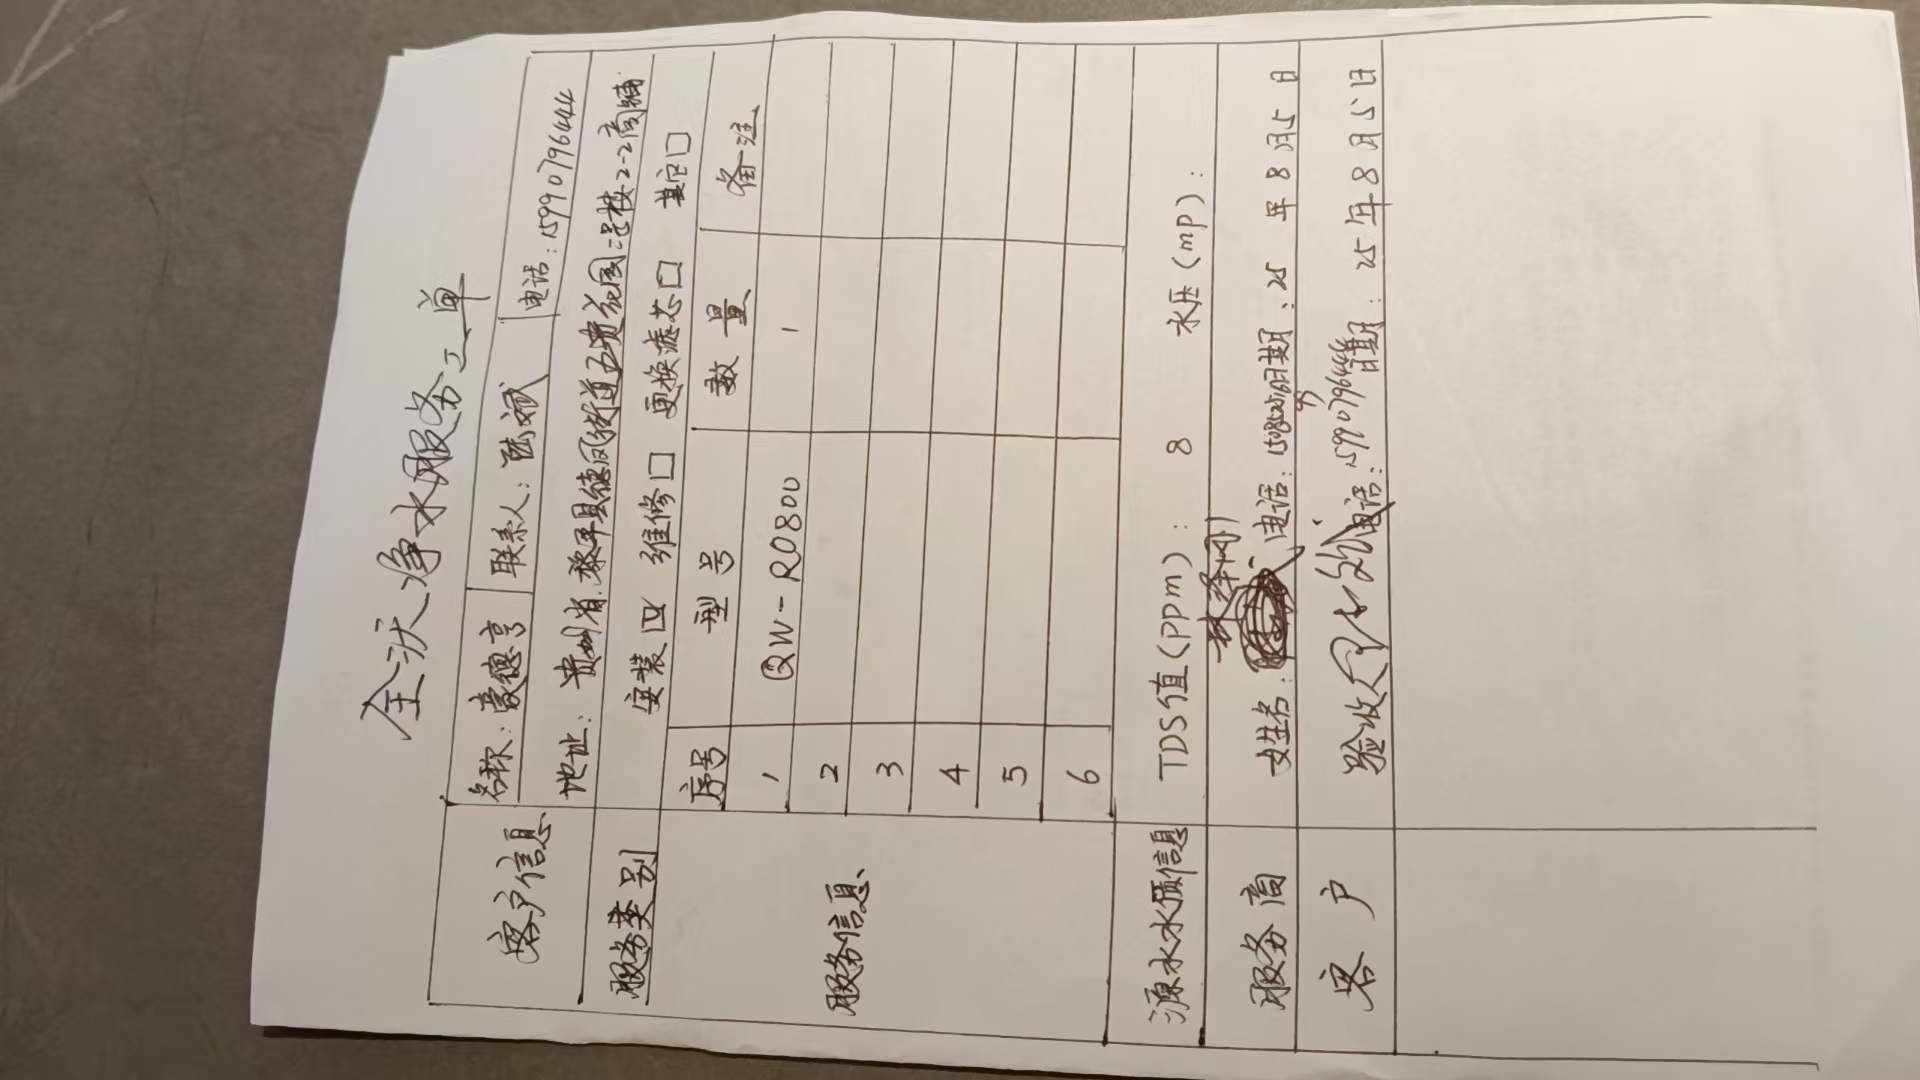 全沃净水服务工单
客户信息
名称：豪德亨 联系人：陆斌 电话：15990796444
地址：贵州省黎平县德凤街道五贵花园二号楼2-2商铺
服务类别 安装☑ 维修口 更换滤芯口 其它口
服务信息
序号 型号 数量 备注
1 QW-RO800 1
2
3
4
5
6
源水水质信息 TDS值(PPm)： 8 水压(mp)：
服务商 姓名： 电话： 日期：25年8月5日
客户 验收人 电话：15990796444 日期：25年8月5日